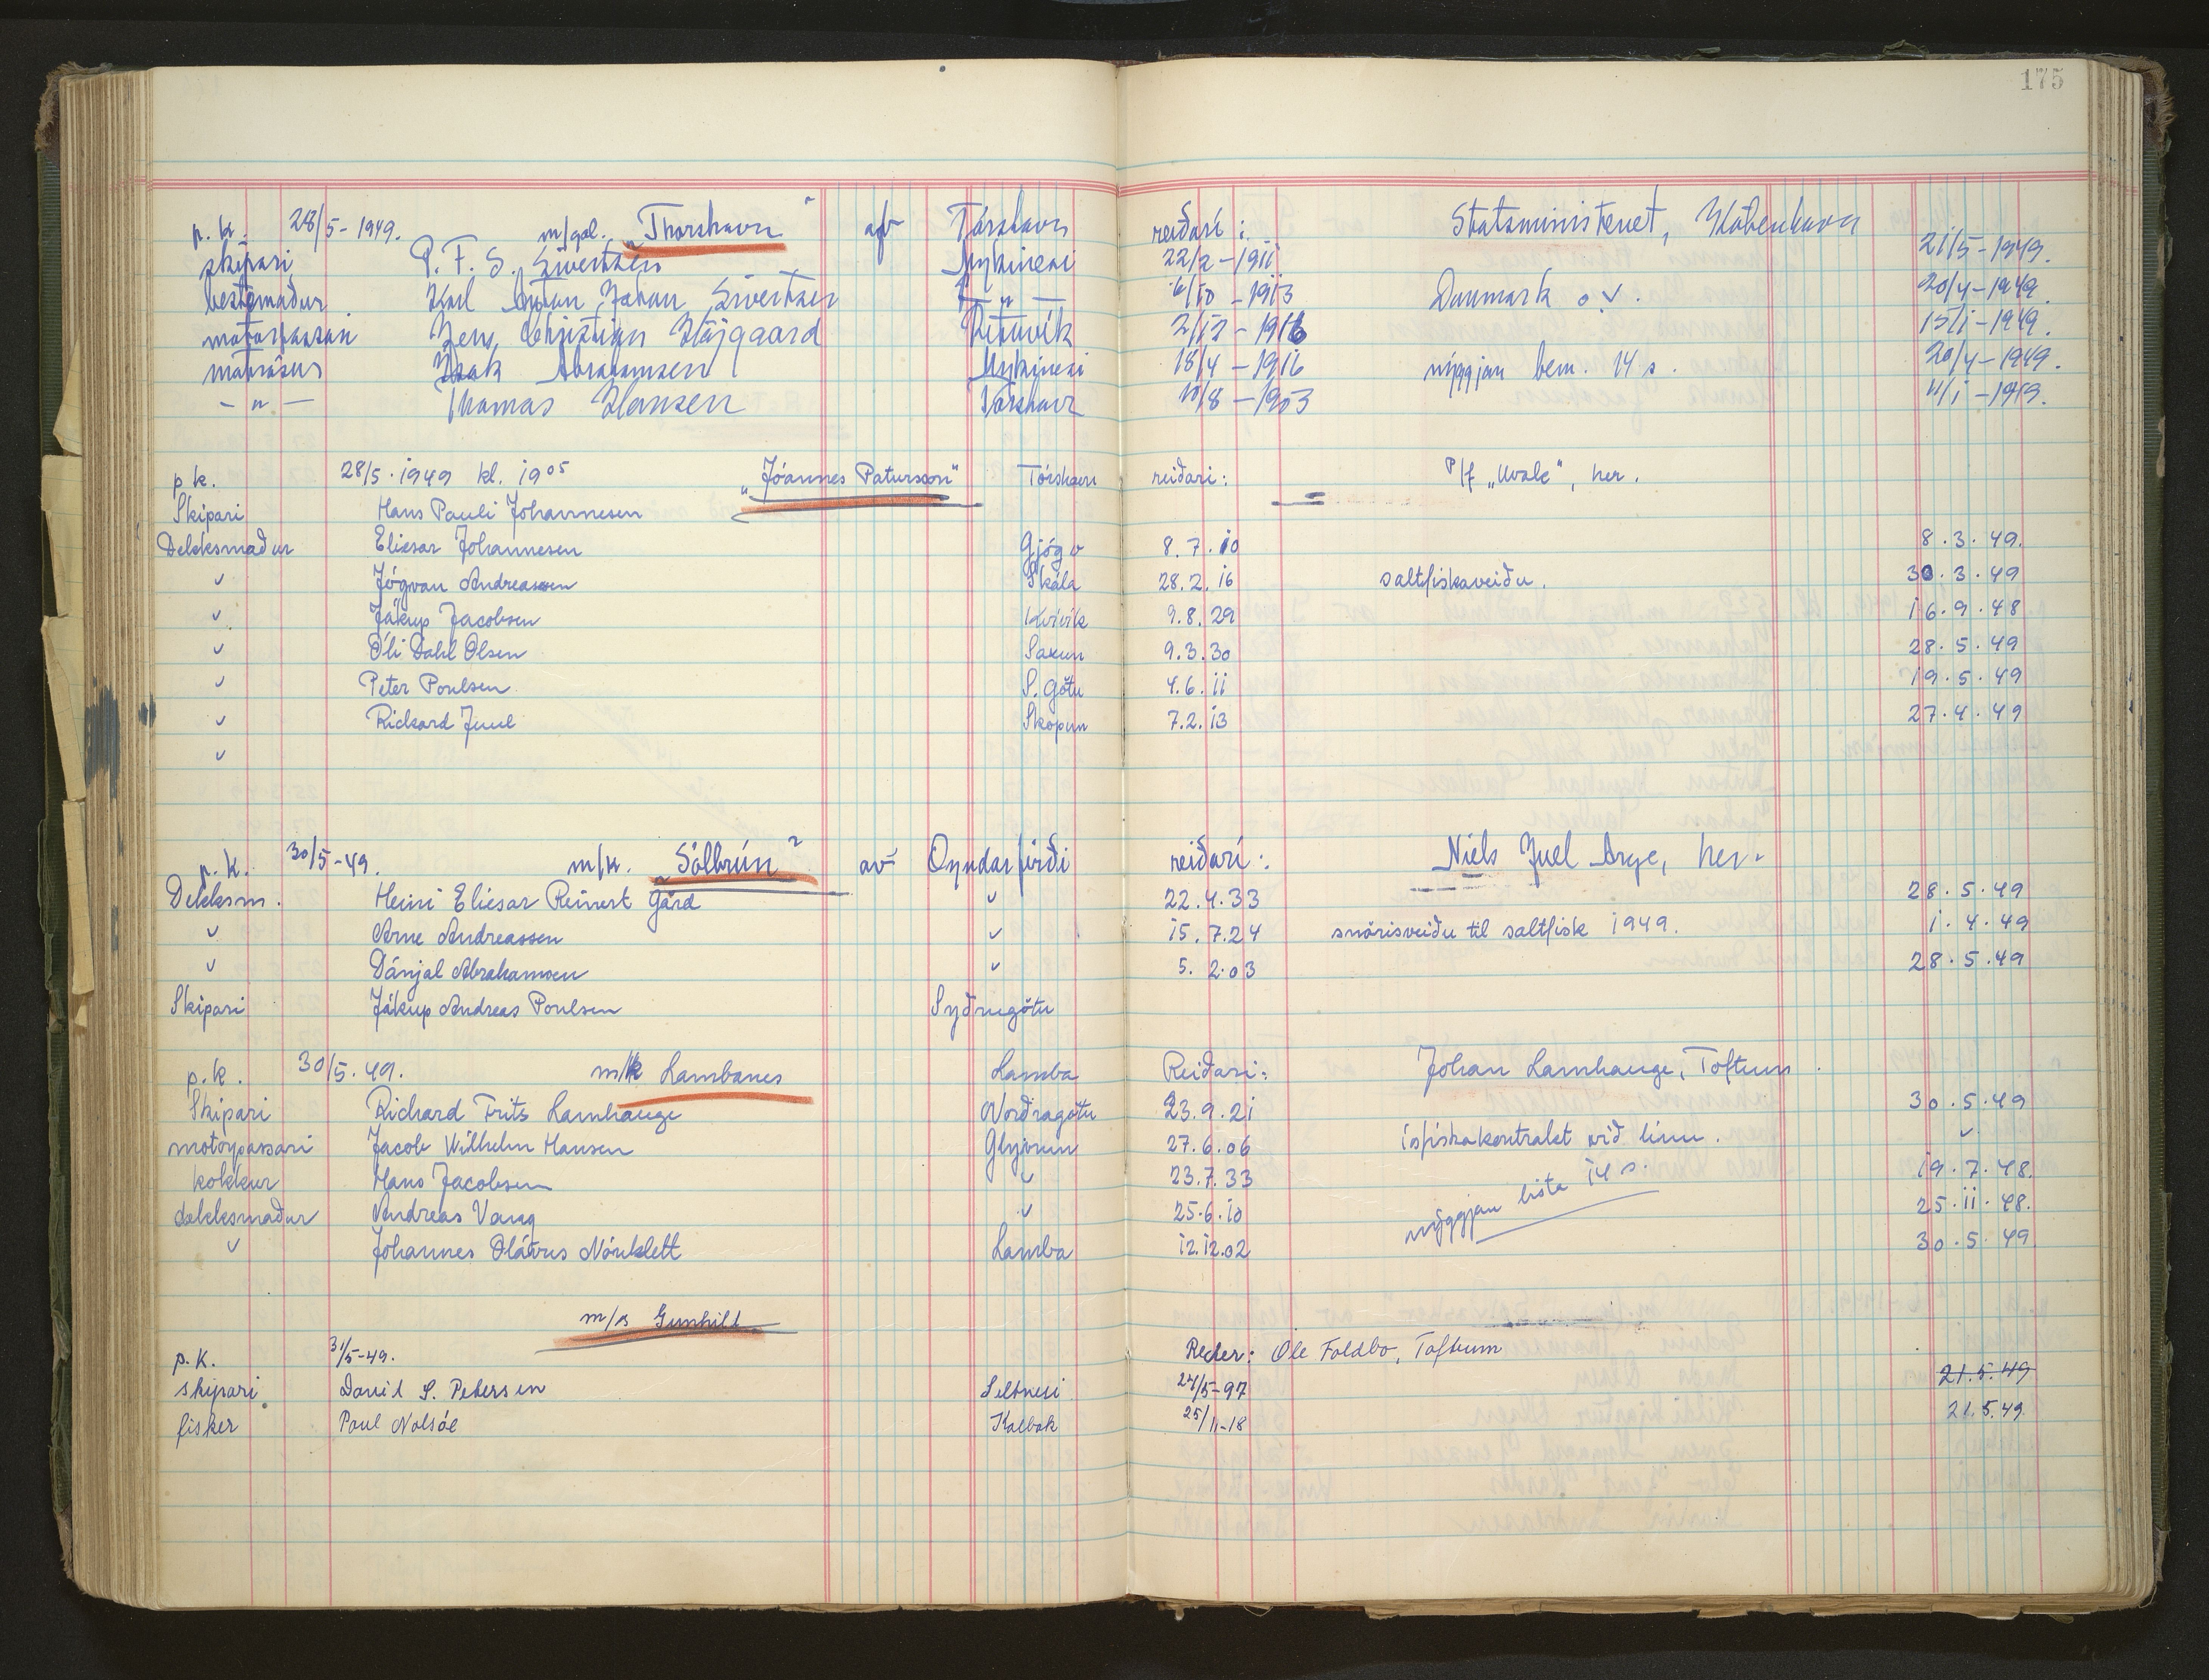 175
p. k. 28/5-1949. m/gal. „Thorshavn" afr Tórshavn reiðari: Statsministeriet, København
skipari P. F. S. Sivertsen Mykinesi 22/2-1911 21/5-1949.
bestimaður Karl Johan Sivertsen -"- 6/10-1913 Danmark o.v. 20/4-1949.
motorpassari Jens Christian Højgaard Rituvík 2/12-1916 15/1-1949.
matrósur Isak Abrahamsen Mykinesi 18/4-1916 nýggjan bem. 14 s. 20/4-1949.
-"- Thomas Hansen Tórshavn 10/8-1903 11/1-1949.
p k. 28/5.1949 kl. 19 05 „Jóannes Patursson" Tórshavn reiðari: P/f „Hvalc", her.
Skipari Hans Pauli Johannesen
Dekksmaður Eliesar Johannesen Gjógv 8.7.10 8.3.49.
" Jógvan Andreassen Skála 28.2.16 saltfiskaveiðu. 30.3.49
" Jákup Jacobsen Kvívík 9.8.29 16.9.48
" Óli Dahl Olsen Saxun 9.3.30 28.5.49
" Peter Poulsen S. Gøtu 4.6.11 19.5.49
" Rickard Juul Skopun 7.2.13 27.4.49
"
p. k. 30/5-49. m/k. „Sólbrún" av Oyndarfirði reiðari: Niels Juel Arge, her.
Dekksm. Heini Eliesar Reinert Gård " 22.4.33 28.5.49
" Arne Andreassen " 15.7.24 snørisveiðu til saltfisk 1949. 1.4.49
" Dánjal Abrahamsen " 5.2.03 28.5.49
Skipari Jákup Andreas Poulsen Syðrugøtu
p. k. 30/5.49. m/k Lambanes Lamba Reiðari: Johan Lamhauge, Toftum.
Skipari Richard Frits Lamhauge Norðragøtu 23.9.21 30.5.49
motorpassari Jacob Wilhelm Hansen Glyvrum 27.6.06 ísfiskakontrakt við línu. "
kokkur Hans Jacobsen " 23.7.33 nýggjan lista 14 s. 19.7.48.
dekksmaður Andreas Vang " 25.6.10 25.11.48.
" Johannes Olávus Nónklett Lamba 12.12.02 30.5.49
m/s Gunhild
p. k. 31/5-49. Reder: Ole Foldbo, Toftum
skipari David S. Petersen Seltnesi 24/5-97 21.5.49
fisker Poul Nolsøe Kalbak 25/11-18 21.5.49.